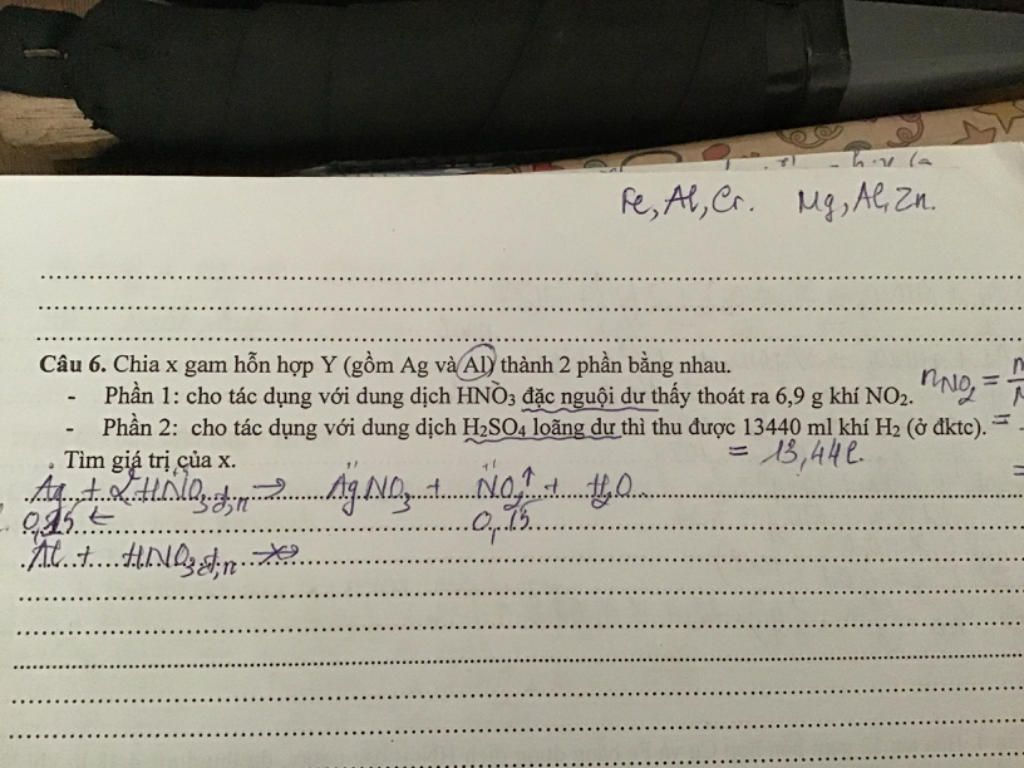 Fe, Al, Cr. Mg, Al, Zn.
Câu 6. Chia x gam hỗn hợp Y (gồm Ag và Al) thành 2 phần bằng nhau.
- Phần 1: cho tác dụng với dung dịch HNO₃ đặc nguội dư thấy thoát ra 6,9 g khí NO₂. nNO₂ =
- Phần 2: cho tác dụng với dung dịch H₂SO₄ loãng dư thì thu được 13440 ml khí H₂ (ở đktc). =
Tìm giá trị của x. = 13,44l. =
Ag + 2HNO₃ đ,n → AgNO₃ + NO₂↑ + H₂O
← 0,15
Al + HNO₃ đ,n